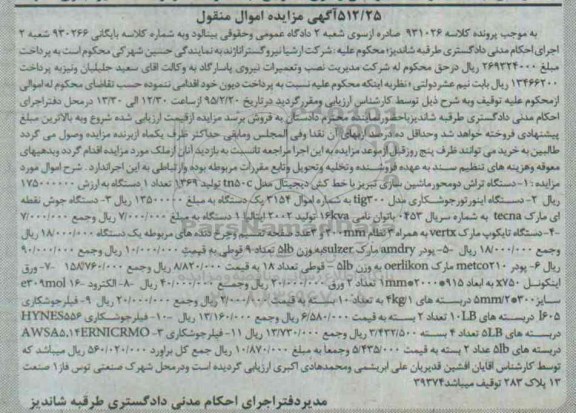 ۵۱۲/۲۵آگهی مزایده اموال منقول
به موجب پرونده کلاسه ۹۳۱۰۲۶ صادره ازسوی شعبه ۲ دادگاه عمومی وحقوقی بینالود وبه شماره کلاسه بایگانی ۹۳۰۲۶۶ شعبه ۲
اجرای احکام مدنی دادگستری طرقبه شاندیز؛ محکوم علیه : شرکت ارشیا نیروگسترآلانژ به نمایندگی حسین شهرکی محکوم است به پرداخت
مبلغ ۲۶۹۳۲۴۰۰۰ ریال درحق محکوم له شرکت مدیریت نصب وتعمیرات نیروی پاسارگاد به وکالت اقای سعید جلیلیان ونیزبه پرداخت
۱۳۴۶۶۲۰۰ ریال بابت نیم عشردولتی؛ نظربه اینکه محکوم علیه نسبت به پرداخت دیون خود اقدامی ننموده حسب تقاضای محکوم له اموالی
ازمحکوم علیه توقیف وبه شرح ذیل توسط کارشناس ارزیابی ومقررگردید درتاریخ ۹۵/۲/۲۰ ازساعت ۱۲/۳۰ الی ۱۳/۳۰ در محل دفتراجرای
احکام مدنی دادگستری طرقبه شاندیزباحضورنماینده محترم دادستان به فروش برسد مزایده ازقیمت ارزیابی شده شروع وبه بالاترین مبلغ
پیشنهادی فروخته خواهد شد وحداقل ده درصد ازبهای آن نقدا وفی المجلس ومابقی حداکثر ظرف یکماه ازبرنده مزایده وصول می گردد
طالبین به خرید می توانند ظرف پنج روزقبل ازموعد مزایده به این اجرا مراجعه تانسبت به بازدید آنان ازملک مورد مزایده اقدام گردد وبدهیهای
معوقه وهزینه های تنظیم سند به عهده فروشنده وتخلیه وتحویل وتابع مقررات مربوطه بوده وارتباطی به این اجراندارد . شرح اموال مورد
مزایده : ۱- دستگاه تراش دومحورماشین سازی تبریز با خط کش دیجیتال مدل tn۵۰c تولید ۱۳۶۹ تعداد ۱ دستگاه به ارزش ۱۷۵۰۰۰۰۰۰
ریال ۲- دستگاه اینورتورجوشکاری مدل tig۳۰۰ به شماره اموال ۲۱۵۴ یک دستگاه به مبلغ ۱۳۵۰۰۰۰۰ ریال ۳- دستگاه جوش نقطه
ای مارک tecna به شماره سریال ۰۴۵۳ باتوان نامی ۱۶kva تولید ۲۰۰۲ ایتالیا ۱ دستگاه به مبلغ ۷/۰۰۰/۰۰۰ ریال وجمع ۷/۰۰۰/۰۰۰
۴- دستگاه تایکوپ مارک vertx به همراه
۱۸/۰۰۰/۰۰۰ ریال
وجمع ۱۸/۰۰۰/۰۰۰ ریال ۵- پودر amdry مارک sulzer به وزن ۵lb تعداد ۹ قوطی به قیمت ۱۰/۰۰۰/۰۰۰ ریال وجمع ۹۰/۰۰۰/۰۰۰
ریال ۶- پودر metco۲۱۰ مارک oerlikon به وزن ۵lb - قوطی تعداد ۱۸ به قیمت ۸/۸۲۰/۰۰۰ ریال وجمع ۱۵۸/۷۶۰/۰۰۰ ۷- ورق
اینکونل x۷۵۰ به ابعاد ۹۱۵*۲۰۰۰*۱mm تعداد ۲ ورق ۲۰/۰۰۰/۰۰۰ ریال وجمع ۴۰/۰۰۰/۰۰۰ ریال ۸- الکترود e۳۰۹mol ۱۶-
سایز ۳۰۰*۵mm/۲ دربسته های ۴kg/۱ به تعداد ۱۰ بسته به قیمت ۲/۰۰۰/۰۰۰ ریال وجمع ۲۰/۰۰۰/۰۰۰ ریال ۹- فیلرجوشکاری
l۶۰۵ دربسته های ۱۰LB تعداد ۲ بسته به قیمت ۶/۵۸۰/۰۰۰ ریال وجمع ۱۳/۱۶۰/۰۰۰ ریال ۱۰- فیلرجوشکاری HYNES۵۵۶
دربسته های ۵LB تعداد ۴ بسته ۳/۴۳۲/۵۰۰ ریال وجمع ۱۳/۷۳۰/۰۰۰ ریال ۱۱- فیلرجوشکاری AWSA۵.۱۴ERNICRMO-۳
دربسته های ۵lb عدد ۲ بسته به قیمت ۵/۴۳۵/۰۰۰ وجمعا به مبلغ ۱۰/۸۷۰/۰۰۰ ریال جمع کل براورد ۵۶۰/۰۲۰/۰۰۰ ریال میباشد که
توسط کارشناس آقایان افشین قدیریان علی ابریشمی ومحمدهادی اکبری ارزیابی گردیده است ودرمحل شهرک صنعتی توس فاز۱ صنعت
۱۳ پلاک ۲۸۳ توقیف میباشد۳۹۳۷۴
مدیردفتراجرای احکام مدنی دادگستری طرقبه شاندیز